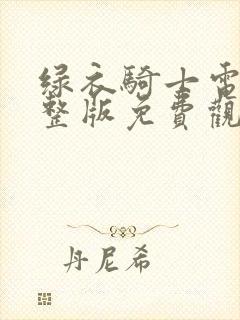 绿衣騎士電
整版免費觀
丹尼希